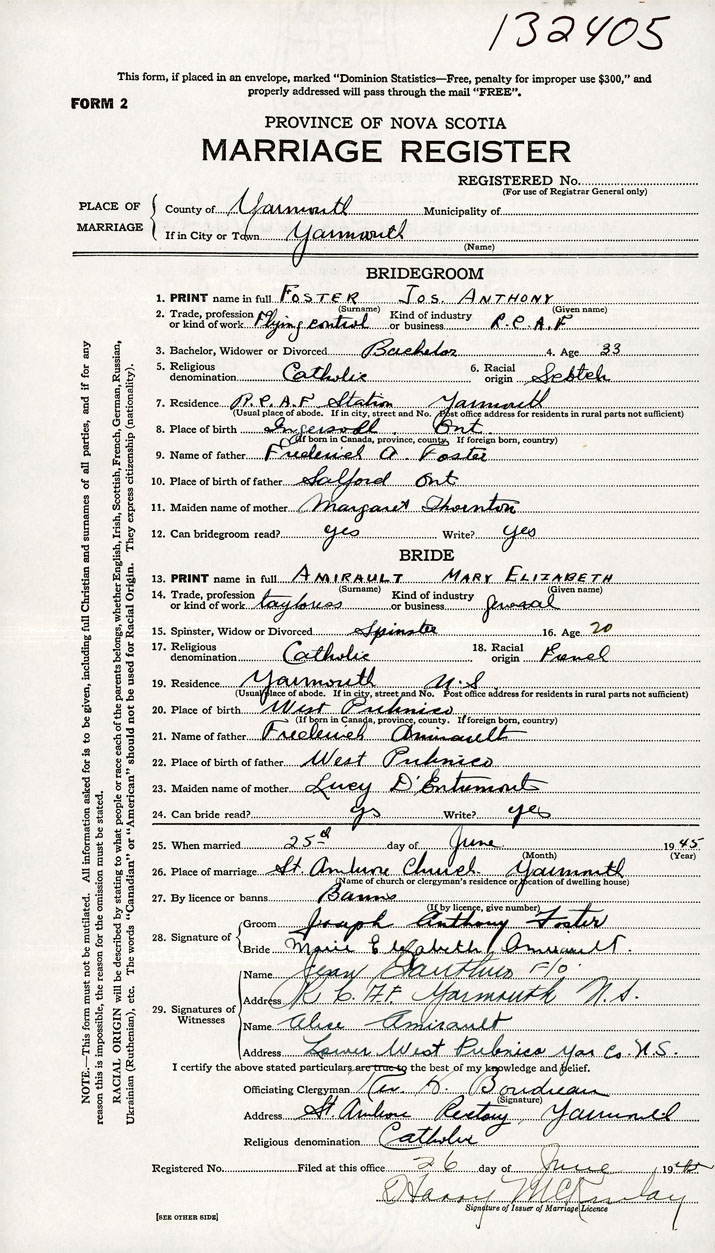 132405
This form, if placed in an envelope, marked "Dominion Statistics—Free, penalty for improper use $300," and
properly addressed will pass through the mail "FREE".
FORM 2
PROVINCE OF NOVA SCOTIA
MARRIAGE REGISTER
REGISTERED No.
(For use of Registrar General only)
PLACE OF MARRIAGE
County of Yarmouth Municipality of
If in City or Town Yarmouth
(Name)
BRIDEGROOM
1. PRINT name in full FOSTER JOS. ANTHONY
(Surname) (Given name)
2. Trade, profession or kind of work Flying control Kind of industry or business R.C.A.F
3. Bachelor, Widower or Divorced Bachelor 4. Age 33
5. Religious denomination Catholic 6. Racial origin Scotch
7. Residence R.C.A.F Station Yarmouth
(Usual place of abode. If in city, street and No. Post office address for residents in rural parts not sufficient)
8. Place of birth Ingersoll Ont.
(If born in Canada, province, county. If foreign born, country)
9. Name of father Frederick A. Foster
10. Place of birth of father Salford Ont
11. Maiden name of mother Margaret Thornton
12. Can bridegroom read? yes Write? yes
BRIDE
13. PRINT name in full AMIRAULT MARY ELIZABETH
(Surname) (Given name)
14. Trade, profession or kind of work tayloress Kind of industry or business
15. Spinster, Widow or Divorced Spinster 16. Age 20
17. Religious denomination Catholic 18. Racial origin
19. Residence Yarmouth N.S
(Usual place of abode. If in city, street and No. Post office address for residents in rural parts not sufficient)
20. Place of birth West Pubnico
(If born in Canada, province, county. If foreign born, country)
21. Name of father Frederick Amirault
22. Place of birth of father West Pubnico
23. Maiden name of mother Lucy D'Entremont
24. Can bride read? ys Write? yes
25. When married 25d day of June 1945
(Month) (Year)
26. Place of marriage St. Ambrose Church Yarmouth
(Name of church or clergyman's residence or location of dwelling house)
27. By licence or banns Banns
(If by licence, give number)
28. Signature of
Groom Joseph Anthony Foster
Bride Marie Elizabeth Amirault.
29. Signatures of Witnesses
Name Jean F/O
Address R.C.A.F Yarmouth N.S.
Name Alice Amirault
Address Lower West Pubnico Yar Co. N.S.
I certify the above stated particulars are true to the best of my knowledge and belief.
Officiating Clergyman Rev. Boudreau
(Signature)
Address St Ambrose Rectory, Yarmouth
Religious denomination Catholic
Registered No. Filed at this office 26 day of June 1945
Harry McKinlay
Signature of Issuer of Marriage Licence
[SEE OTHER SIDE]
NOTE.—This form must not be mutilated. All information asked for is to be given, including full Christian and surnames of all parties, and if for any
reason this is impossible, the reason for the omission must be stated.
RACIAL ORIGIN will be described by stating to what people or race each of the parents belongs, whether English, Irish, Scottish, French, German, Russian,
Ukrainian (Ruthenian), etc. The words "Canadian" or "American" should not be used for Racial Origin. They express citizenship (nationality).